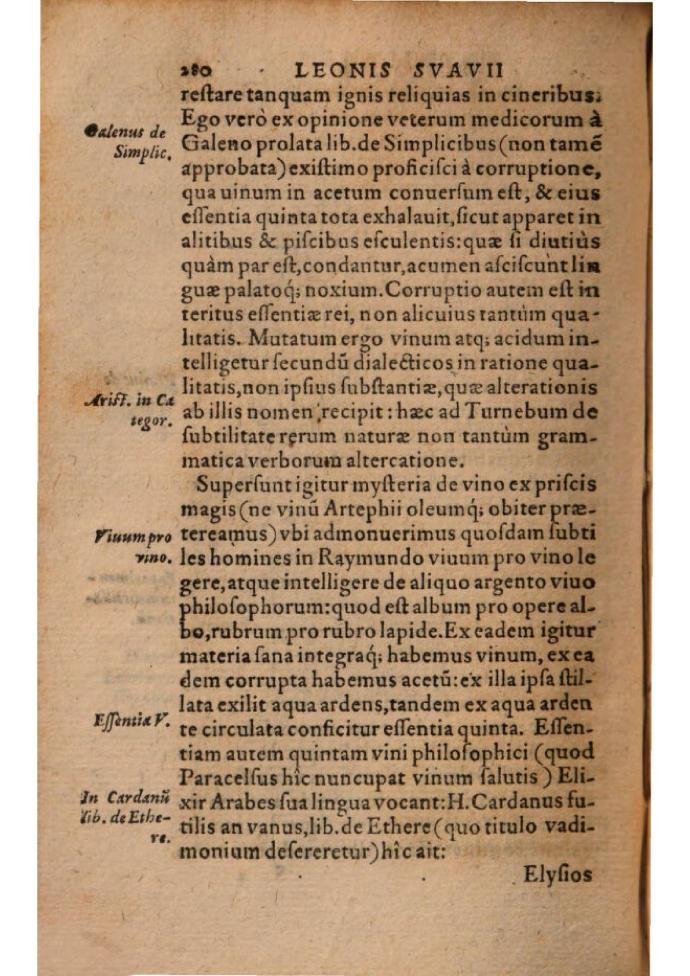 280 LEONIS SVAVII
reſtare tanquam ignis reliquias in cineribus.
Ego verò ex opinione veterum medicorum à
Galenus de
Simplic.
Galeno prolata lib. de Simplicibus (non tamē
approbata) exiſtimo proficiſci à corruptione,
qua uinum in acetum conuerſum eſt, & eius
eſſentia quinta tota exhalauit, ſicut apparet in
alitibus & piſcibus eſculentis: quæ ſi diutiùs
quàm par eſt, condantur, acumen aſciſcunt lin
guæ palatoq́; noxium. Corruptio autem eſt in
teritus eſſentiæ rei, non alicuius tantùm qua-
litatis. Mutatum ergo vinum atq; acidum in-
telligetur ſecundū dialecticos in ratione qua-
Ariſt. in Ca
tegor.
litatis, non ipſius ſubſtantiæ, quæ alterationis
ab illis nomen recipit: hæc ad Turnebum de
ſubtilitate rerum naturæ non tantùm gram-
matica verborum altercatione.
Superſunt igitur myſteria de vino ex priſcis
magis (ne vinū Artephii oleumq́; obiter præ-
Viuum pro
vino.
tereamus) vbi admonuerimus quoſdam ſubti
les homines in Raymundo viuum pro vino le
gere, atque intelligere de aliquo argento viuo
philoſophorum: quod eſt album pro opere al-
bo, rubrum pro rubro lapide. Ex eadem igitur
materia ſana integraq́; habemus vinum, ex ea
dem corrupta habemus acetū: ex illa ipſa ſtil-
lata exilit aqua ardens, tandem ex aqua arden
Eſſentia V.
te circulata conficitur eſſentia quinta. Eſſen-
tiam autem quintam vini philoſophici (quod
Paracelſus hîc nuncupat vinum ſalutis) Eli-
In Cardanū
lib. de Ethe-
re.
xir Arabes ſua lingua vocant: H. Cardanus fu-
tilis an vanus, lib. de Ethere (quo titulo vadi-
monium deſereretur) hîc ait:
Elyſios